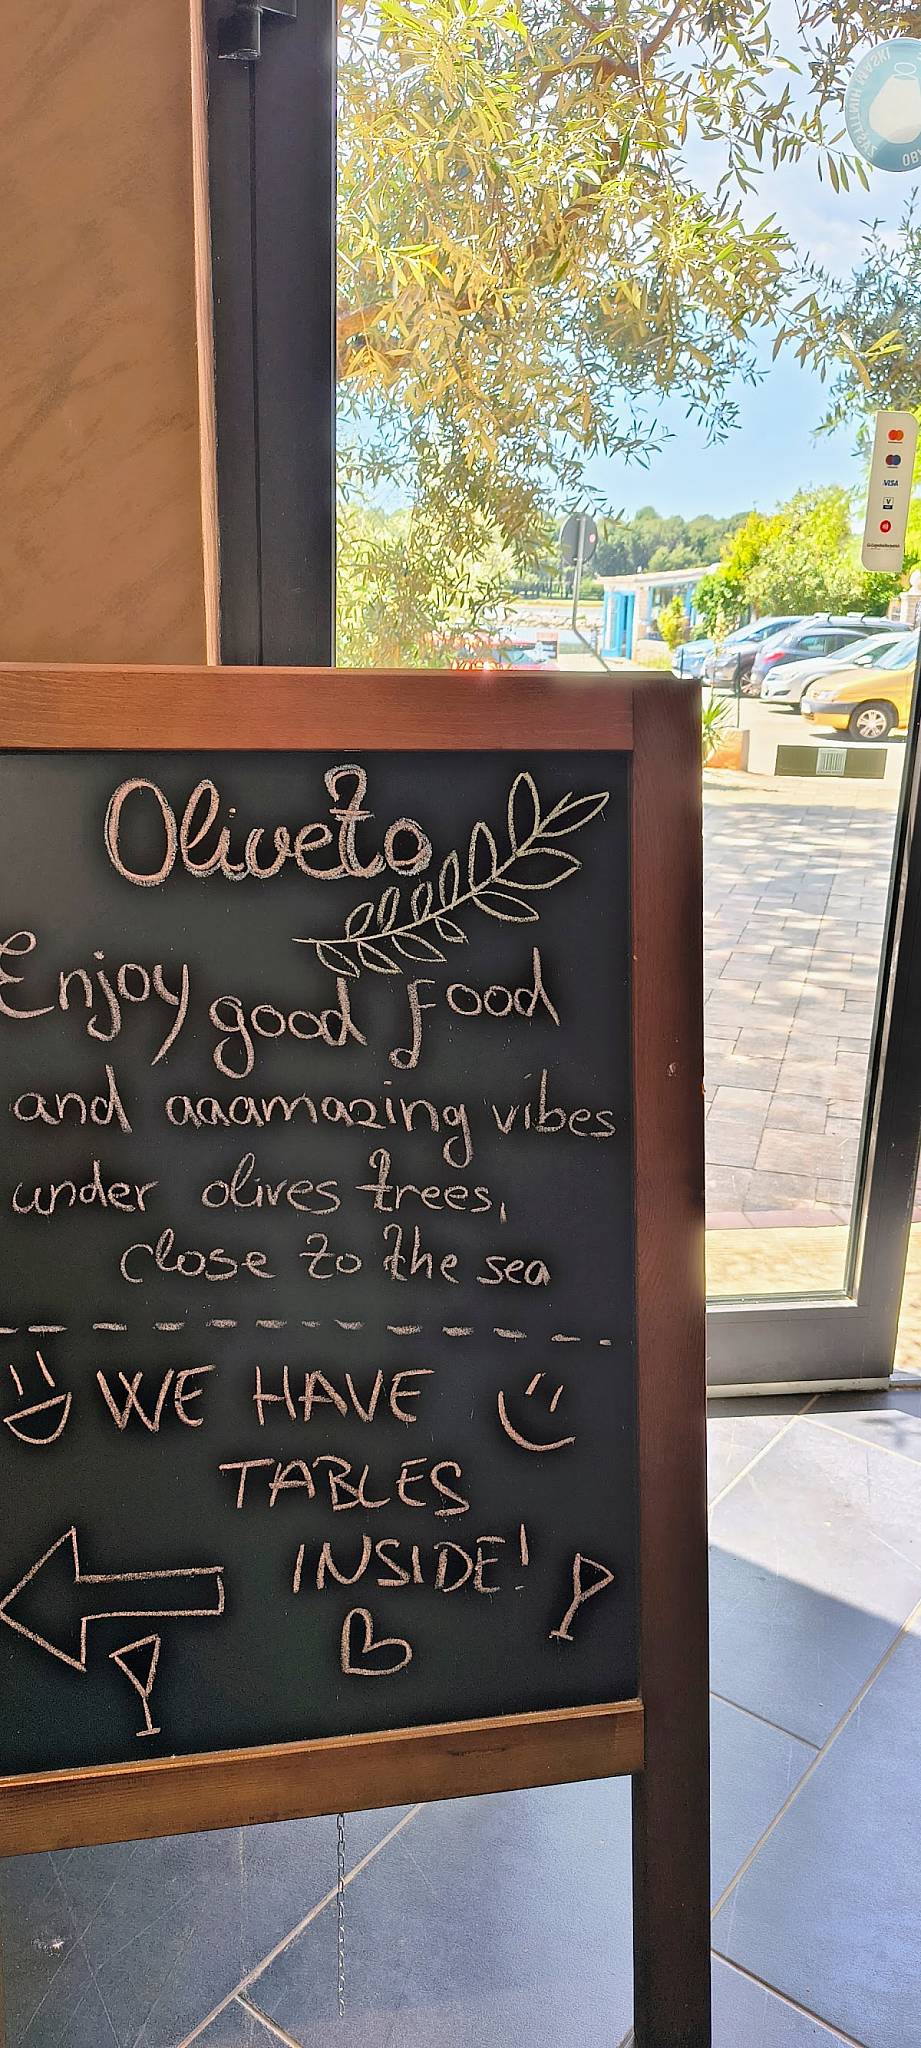 Oliveto
Enjoy good food
and aaamazing vibes
under olives trees,
close to the sea
WE HAVE
TABLES
INSIDE!
VISA